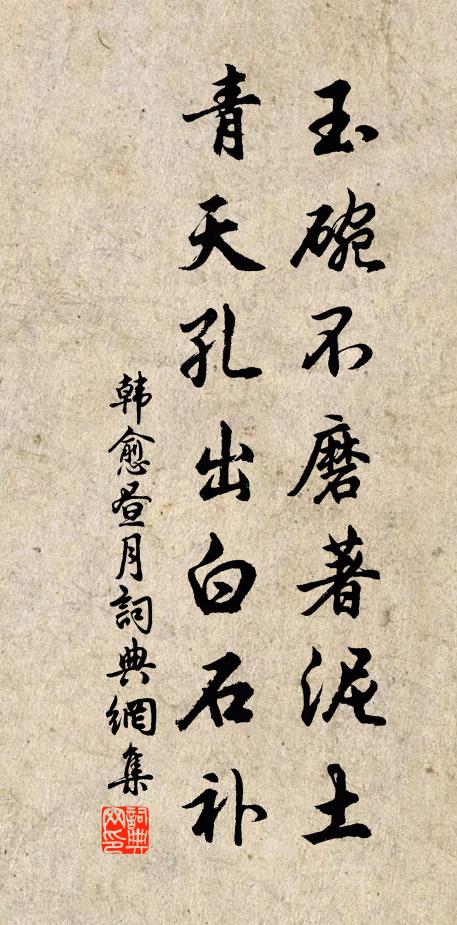 玉碗不磨著泥土
青天孔出白石补
韩愈昼月詞典網集
詞典
网印